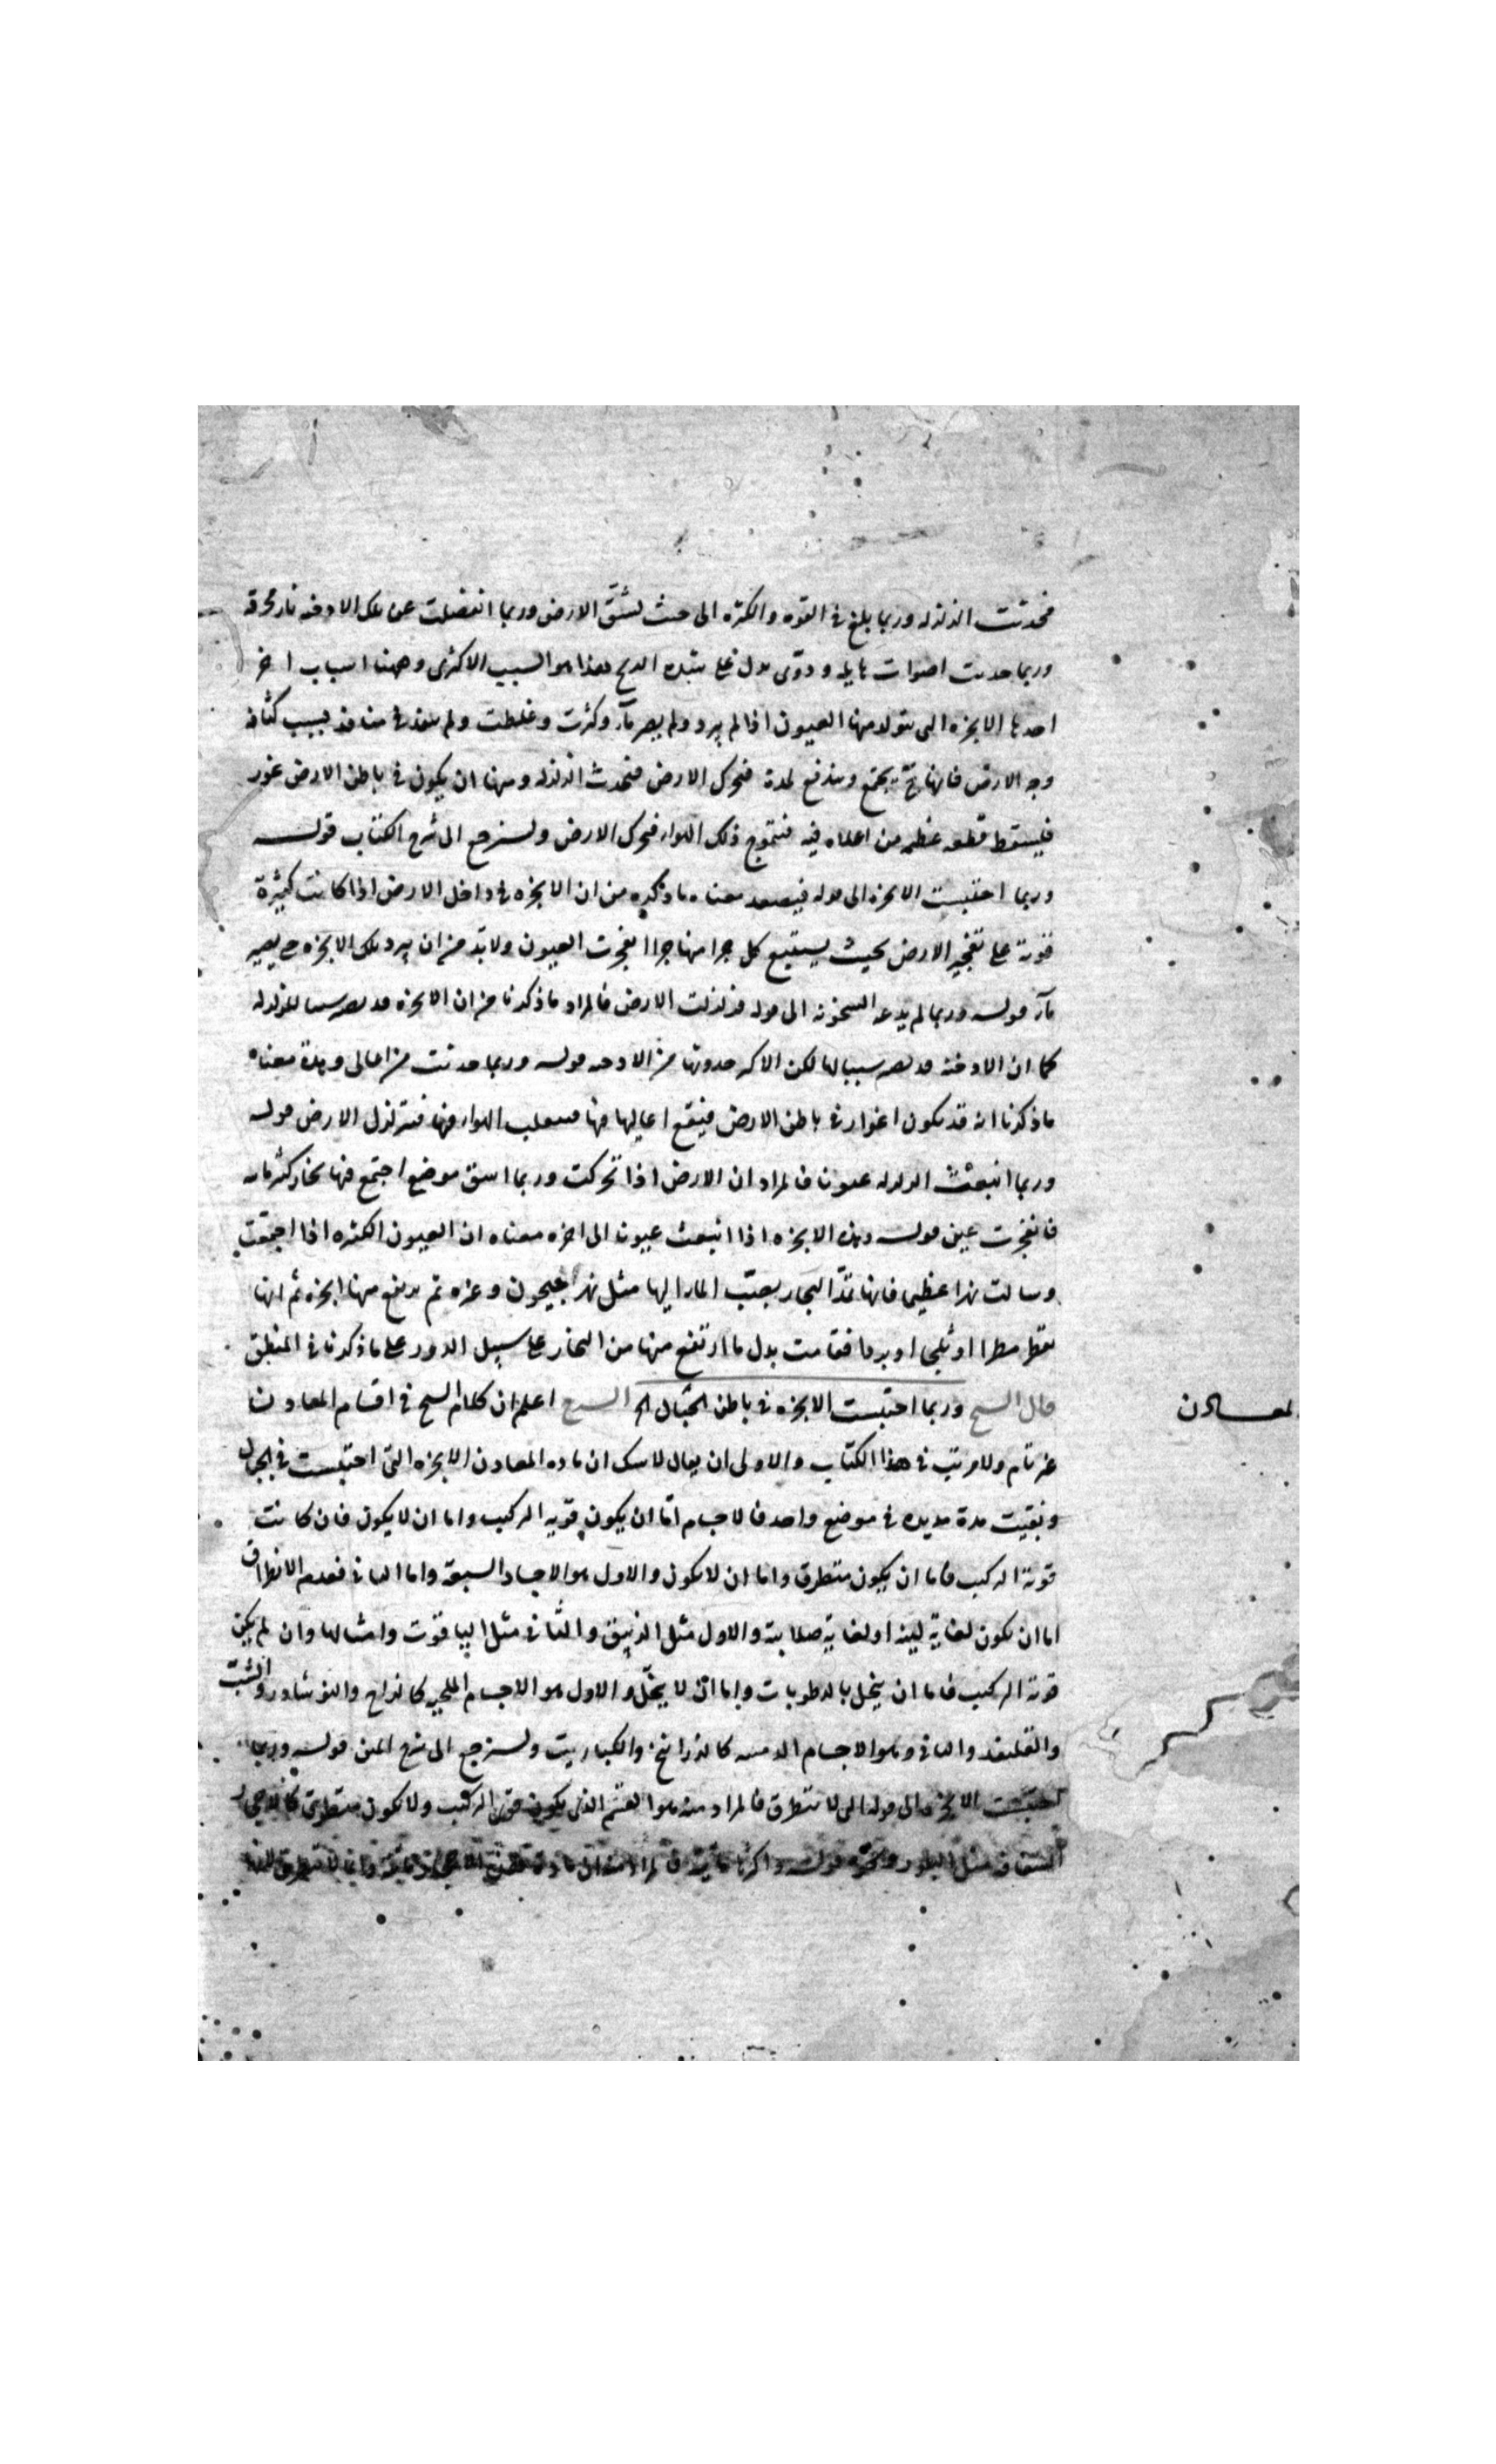 فحدثت الزلزله وربما بلغ في القوه والكثره الى حيث تشق الارض وربما انفصلت عن تلك الادخنه نار محرقه
وربما حدثت اصوات هايله ودوى يدل على شده الريح فهذا هو السبب الاكثرى وههنا اسباب اخر
احدها الابخره التى يتولد منها العيون اذا لم يبرد ولم يصر مآء وكثرت وغلظت ولم ينفذ في منافذ بسبب كثافه
وجه الارض فانها ح يجتمع ويندفع لمدة فتحرك الارض فتحدث الزلزله ومنها ان يكون في باطن الارض غور
فيسقط قطعه عظيمه من اعلاه فيه فتتموج ذلك الهواء فتحرك الارض ولنرجع الى شرح الكتاب قوله
وربما احتبست الابخره الى قوله فيصعد معناه ما ذكره من ان الابخره في داخل الارض اذا كانت كثيرة
قوية على تفجير الارض بحيث يستتبع كل جزا منها جزا انفجرت العيون ولابد من ان يبرد تلك الابخره حتى يصير
مآء قوله وربما لم يدعه السخونه الى قوله فزلزلت الارض فالمراد ما ذكرنا من ان الابخره قد تصير سببا للزلزله
كما ان الادخنه قد تصير سببا لها لكن الاكثر حدوثها من الادخنه قوله وربما حدثت من اعالى وهدة معناه
ما ذكرنا انه قد يكون اغوار في باطن الارض فيقع اعاليها فيها فينقلب الهواء فيها فتتزلزل الارض قوله
وربما انبعثت الزلزله عيونا فالمراد ان الارض اذا تحركت وربما انشق موضع اجتمع فيها بخار كثير مائيه
فانفجرت عين قوله وهذه الابخره اذا انبعثت عيونا الى اخره معناه ان العيون الكثيره اذا اجتمعت
وسالت نهرا عظيما فانها تمد البحار بصب الماء اليها مثل نهر جيحون وغيره ثم يرتفع منها ابخره ثم انها
تقطر مطرا او ثلجا او بردا فقامت بدل ما ارتفع منها من البخار على سبيل الدور على ما ذكرنا في المنطق
قال الشيخ وربما احتبست الابخره في باطن الجبال الخ الشرح اعلم ان كلام الشيخ في اقسام المعادن
المعادن
غير تام ولا مرتب في هذا الكتاب والاولى ان يقال لا شك ان ماده المعادن الابخره التى احتبست في الجبال
وبقيت مدة مديده في موضع واحد فالاجسام اما ان يكون قويه التركيب واما ان لا يكون فان كانت
قوية التركيب فاما ان يكون متطرق واما ان لا يكون والاول هو الاجساد السبعة واما الثانى فعدم الانطراق
اما ان يكون لغاية لينه او لغاية صلابته والاول مثل الزئبق والثانى مثل الياقوت وامثالها وان لم يكن
قوية التركيب فاما ان ينحل بالرطوبات واما ان لا ينحل والاول هو الاجسام الملحيه كالزاج والنوشادر والشب
والقلقند والثانى وهو الاجسام الدهنيه كالزرانيخ والكباريت ولنرجع الى شرح المتن قوله وربما
احتبست الابخره الى قوله التى لا تتطرق فالمراد منه هو القسم الذى يكون قوى التركيب ولا يكون متطرق كالاحجار
الشفافه مثل البلور وغيره قوله واكثرها مائية فالمراد منه ان مادة